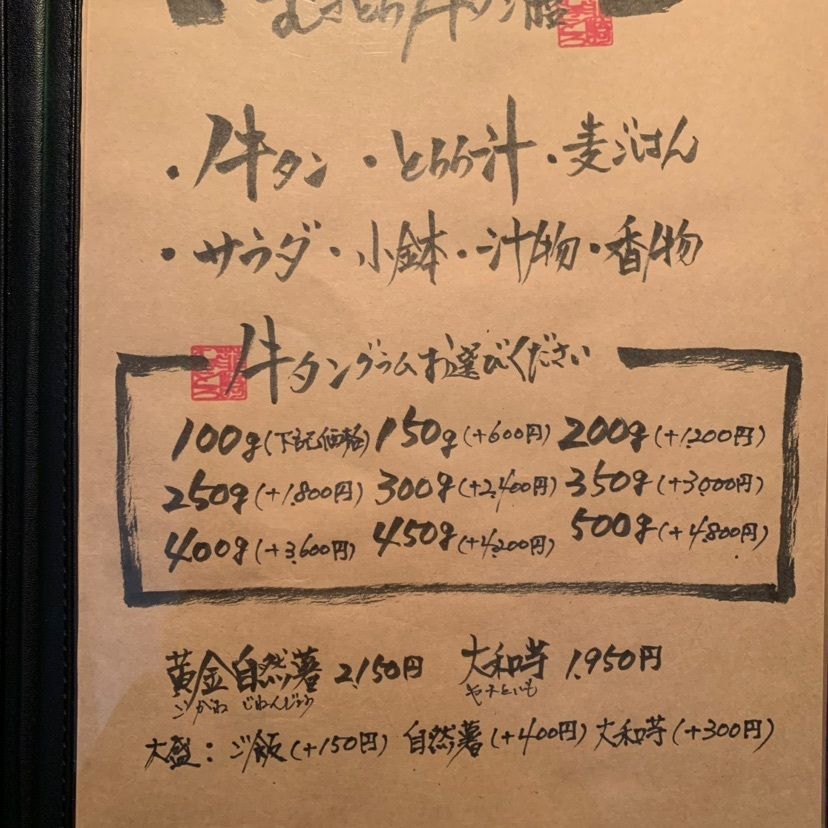 むぎとろ牛タン膳
・牛タン ・とろろ汁 ・麦ごはん
・サラダ ・小鉢 ・汁物 ・香物
牛タングラムお選びください
100g(下記価格) 150g(+600円) 200g(+1,200円)
250g(+1,800円) 300g(+2,400円) 350g(+3,000円)
400g(+3,600円) 450g(+4,200円) 500g(+4,800円)
黄金自然薯 2,150円 大和芋 1,950円
こがね じねんじょ やまといも
大盛:ご飯(+150円) 自然薯(+400円) 大和芋(+300円)